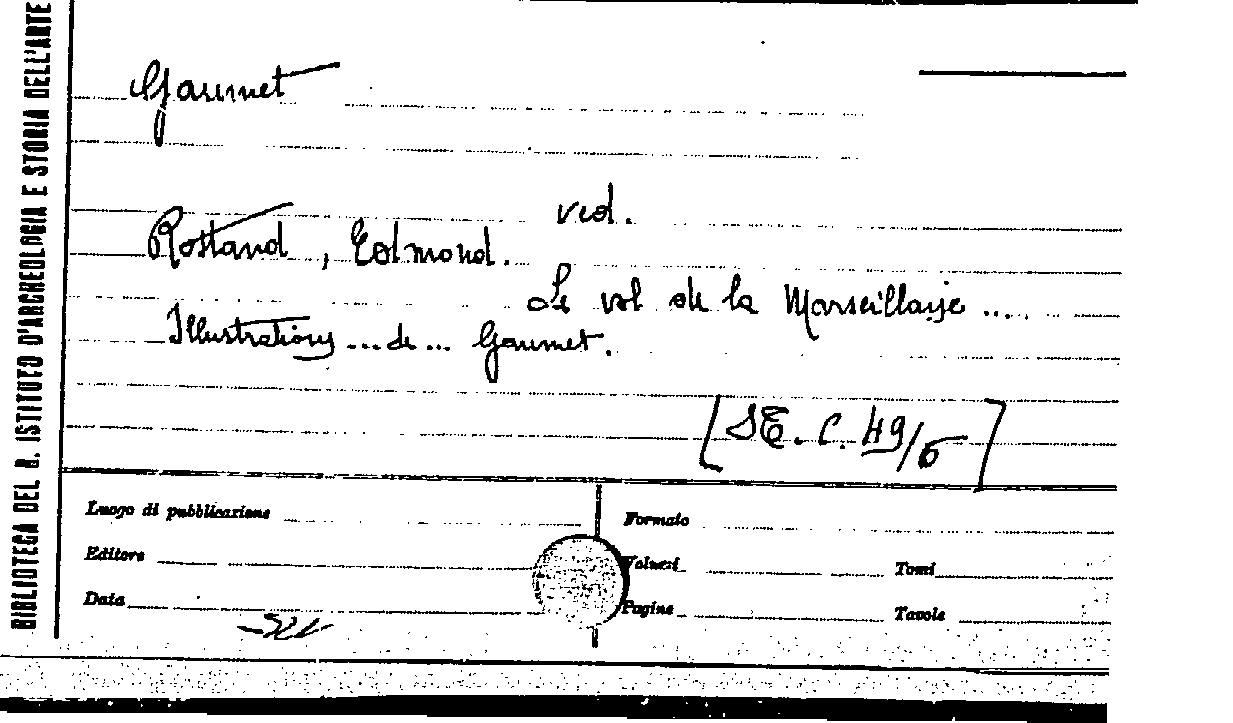 BIBLIOTECA DEL R. ISTITUTO D'ARCHEOLOGIA E STORIA DELL'ARTE
Gaumet
ved.
Rostand, Edmond.
Le vol de la Marseillaise ....
Illustrations ... de ... Gaumet.
[SE. C. 49/6]
Luogo di pubblicazione
Formato
Editore
Volumi
Tomi
Data
Pagine
Tavole